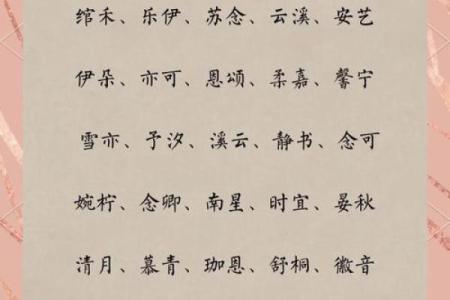 绾禾、乐伊、苏念、云溪、安艺
伊朵、亦可、恩颂、柔嘉、馨宁
雪亦、予汐、溪云、静书、念可
婉柠、念卿、南星、时宜、晏秋
清月、慕青、珈恩、舒桐、徽音